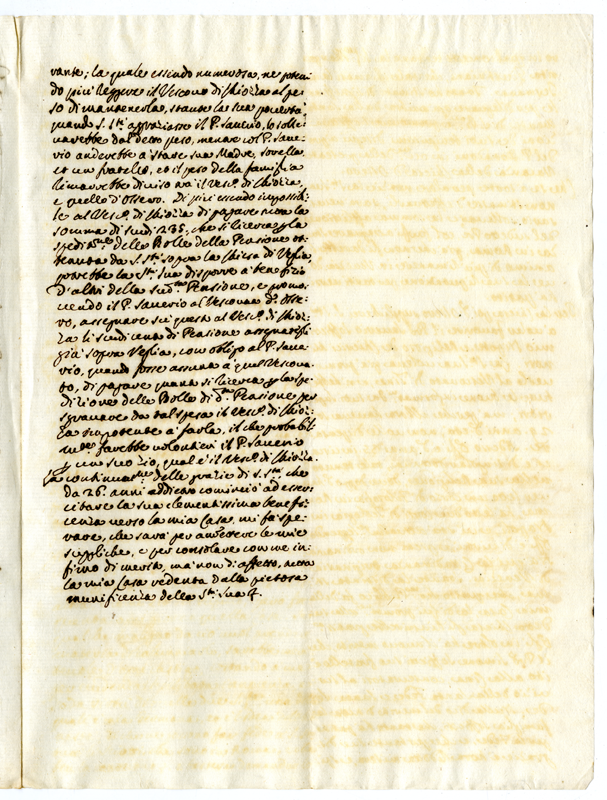 vante; la quale essendo numerosa, ne poten
do più reggere il Vescovo di Chiozza al pe:
so di mantenerla, stante la sua povertà,
quando S. S.tà aggraziasse il P. Saverio, lo solle:
varebbe dal detto peso, mentre col P. Save:
rio anderebbe a stare sua Madre, sorella
et un fratello, et il peso della famiglia
rimarrebbe diviso tra il Vesc.o di Chiozza,
e quello d'Ossero. Di più essendo impossibi:
le al Vesc.o di Chiozza di pagare non la
somma di scudi 235, che si ricerca p la
spediz.ne delle Bolle della Pensione ot:
tenuta da S. S.tà sopra la Chiesa di Veglia,
potrebbe la S.tà Sua disporre a benefizio
d'altri della sud.ta Pensione, e promo:
vendo il P. Saverio al Vescovato d'Osse:
ro, assegnare sù questo al Vesc.o di Chioz:
za li scudi cento di Pensione assegnatigli
già sopra Veglia, con obligo al P. Save:
rio, quando fosse assunto a quel Vescova:
to, di pagare quanto si ricerca p la spe:
dizione delle Bolle di d.ta Pensione per
sgravare da tal spesa il Vesc.o di Chioz:
za impotente a farla, il che probabil
m.te farebbe volontieri il P. Saverio
p un suo zio, qual è il Vesc.o di Chiozza.
La continuaz.ne delle grazie di S. S.tà, che
da 26. anni addietro cominciò ad eser:
citare la sua clementissima benefi:
cenza verso la mia Casa, mi fa spe:
rare, che sarà per ammettere le mie
suppliche, e per consolare con me in:
fimo di merito, ma non di affetto, tutta
la mia Casa redenta dalla pietosa
munificenza della S.tà Sua